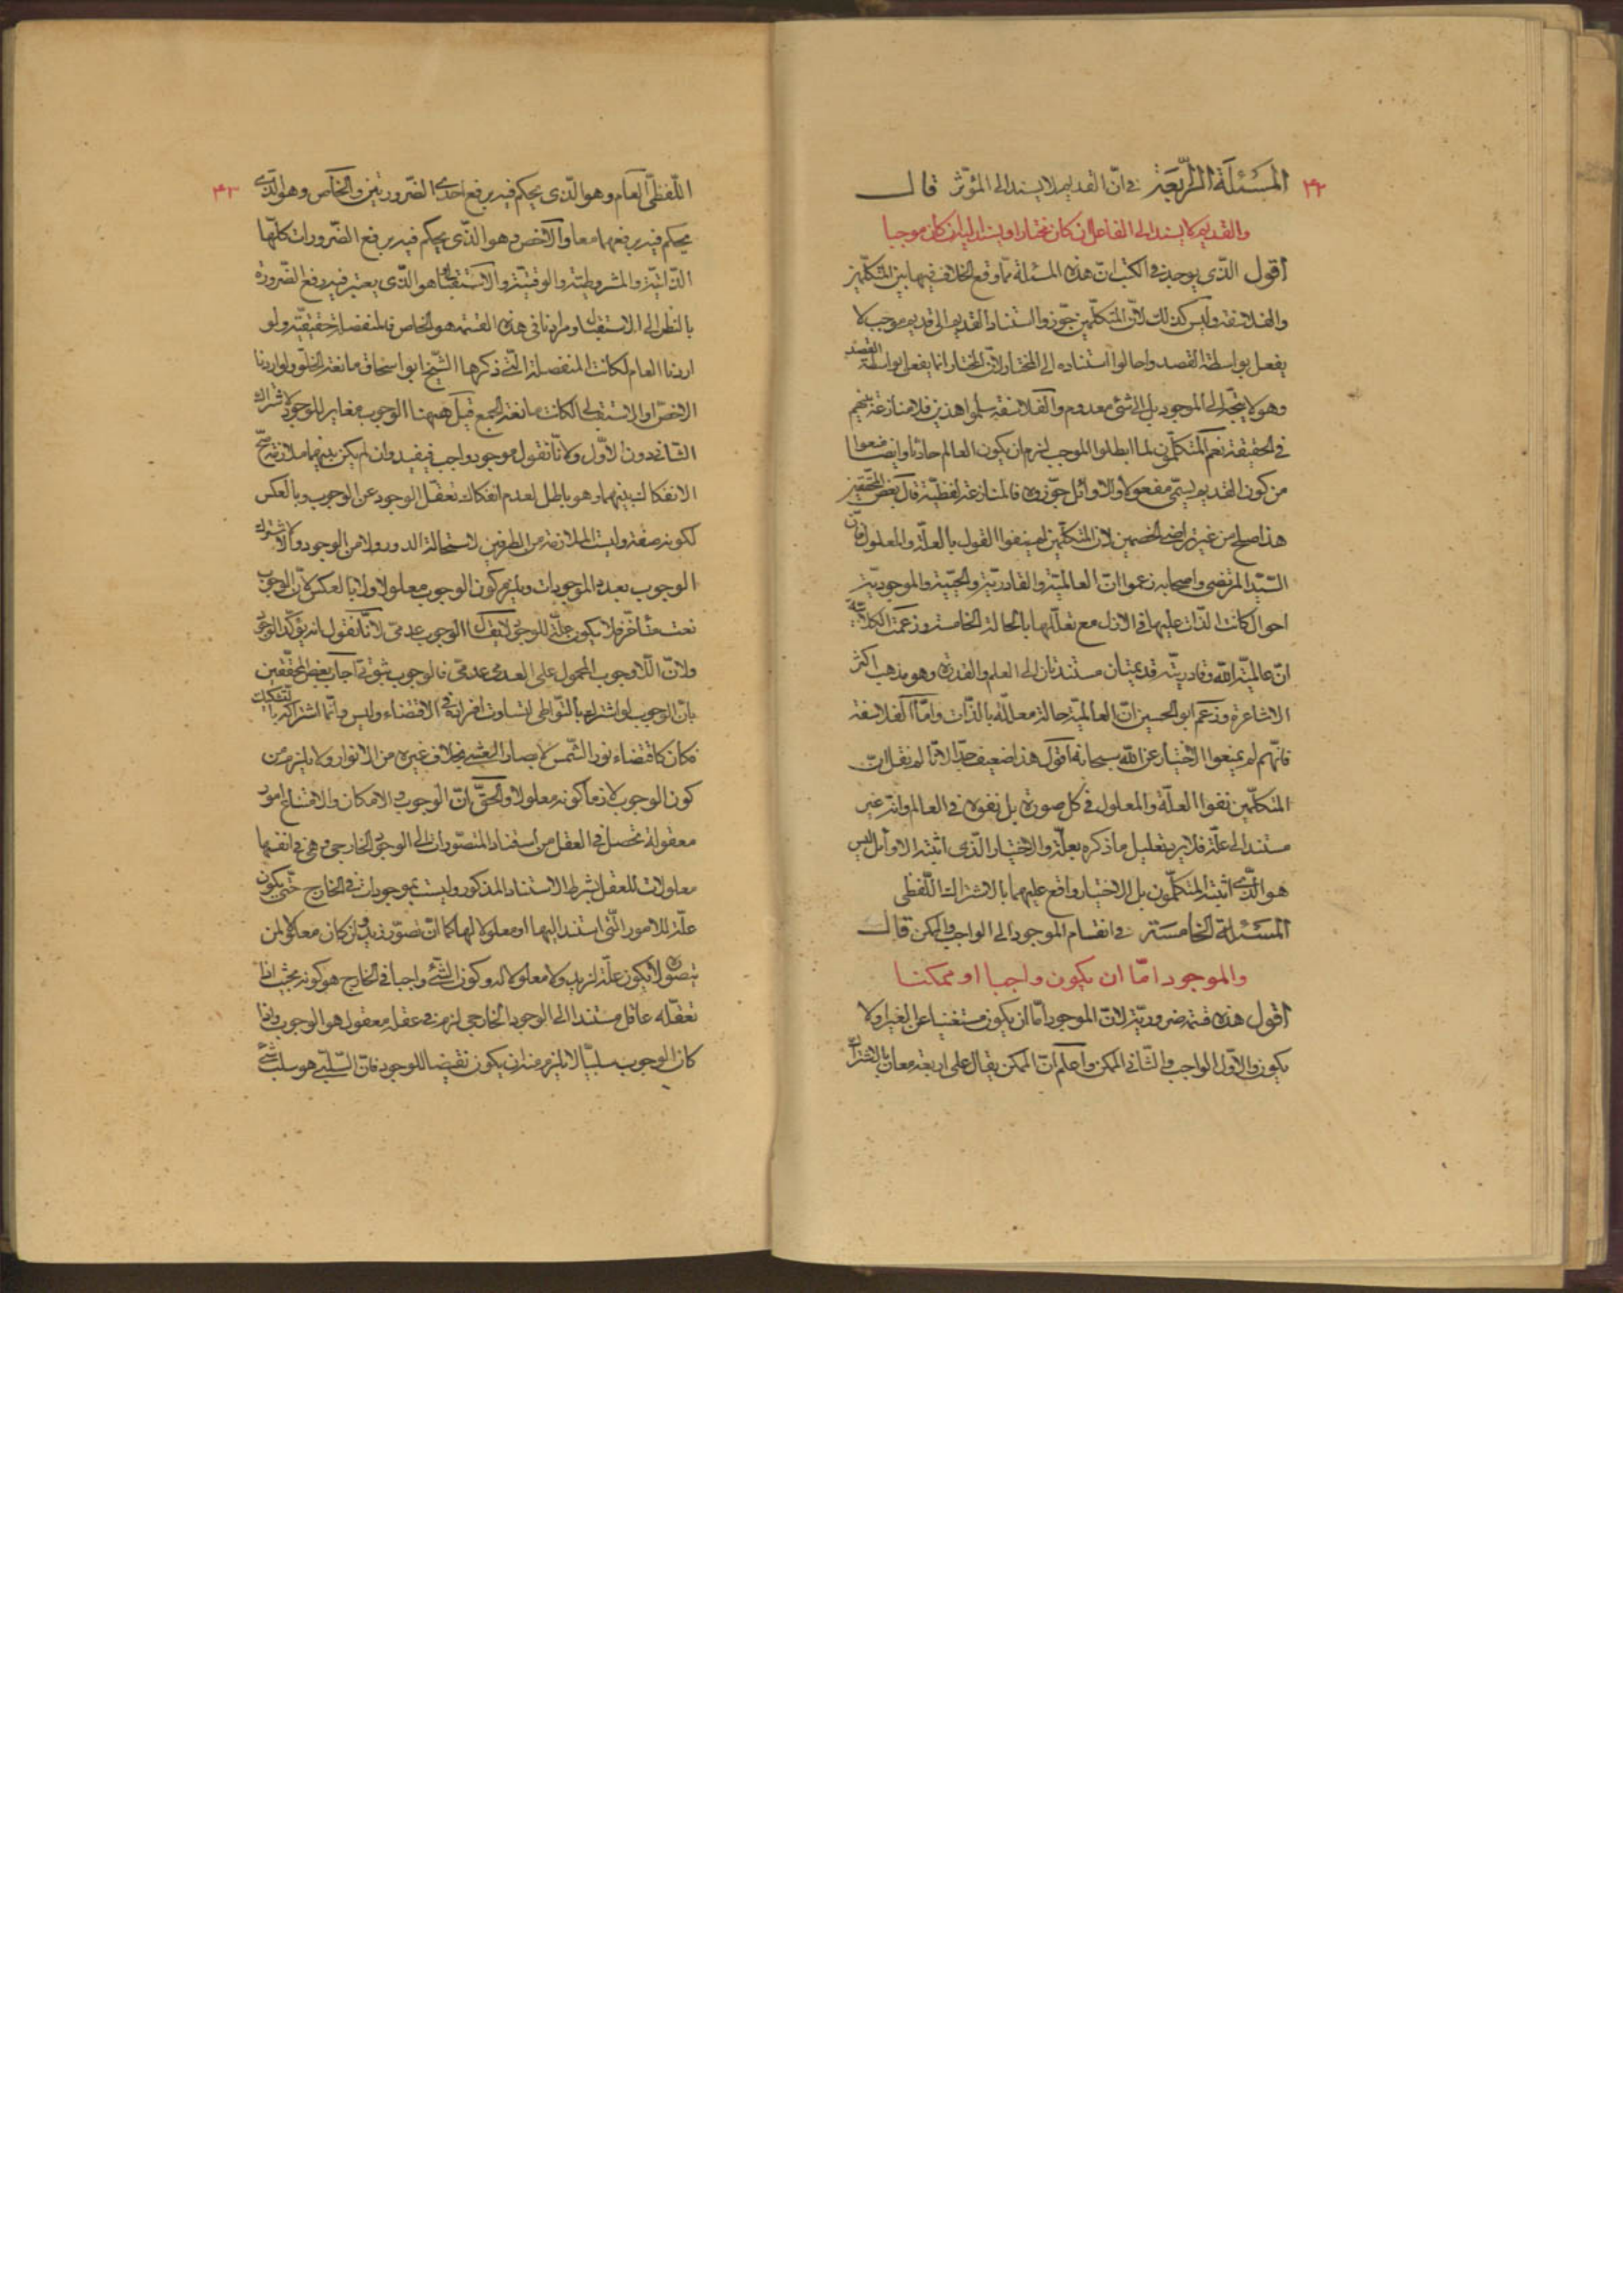 ٤٢
المسئلة الرابعة في ان القديم لا يستند الى المؤثر قال
والقديم لا يستند الى الفاعل ان كان مختارا ويستند اليه ان كان موجبا
اقول الذي يوجد في الكتب ان هذه المسئلة مما وقع الخلاف فيها بين المتكلمين
والفلاسفة وليس كذلك لان المتكلمين جوزوا استناد القديم الى قديم موجب لا
يفعل بواسطة القصد واحالوا استناده الى المختار لان المختار انما يفعل بواسطة القصد
وهو لا يتجه الى الموجود بل الى شئ معدوم والفلاسفة سلموا هذين فلا منازعة بينهم
في الحقيقة نعم المتكلمون لما ابطلوا الموجب لزم ان يكون العالم حادثا وايضا منعوا
من كون القديم يسمى مفعولا والاوائل جوزوه فالمنازعة لفظية قال بعض المحققين
هذا صلح من غير تراضي الخصمين لان المتكلمين لم ينفوا القول بالعلة والمعلول فان
السيد المرتضى واصحابه زعموا ان العالمية والقادرية والحيية والموجودية
احوال كانت الذات عليها في الازل مع تعللها بالحالة الخامسة وزعمت الكلابية
ان عالمية الله وقادريته قديمتان مستندتان الى العلم والقدرة وهو مذهب اكثر
الاشاعرة وزعم ابو الحسين ان العالمية حالة معللة بالذات واما الفلاسفة
فانهم لم يمنعوا الاختيار عن الله سبحانه اقول هذا ضعيف جدا لانا لم نقل ان
المتكلمين نفوا العلة والمعلول في كل صورة بل نفوه في العالم وانه غير
مستند الى علة فلا يرد تعليل ما ذكره بعلة والاختيار الذي اثبته الاوائل ليس
هو الذي اثبته المتكلمون بل الاختيار واقع عليهما بالاشتراك اللفظي
المسئلة الخامسة في انقسام الموجود الى الواجب والممكن قال
والموجود اما ان يكون واجبا او ممكنا
اقول هذه قسمة ضرورية لان الموجود اما ان يكون مستغنيا عن الغير او لا
يكون والاول الواجب والثاني الممكن واعلم ان الممكن يقال على اربعة معان بالاشتراك
٤٣
اللفظي العام وهو الذي يحكم فيه برفع احدى الضرورتين والخاص وهو الذي
يحكم فيه برفعهما معا والاخص وهو الذي يحكم فيه برفع الضرورات كلها
الذاتية والمشروطية والوقتية والاستقبالي هو الذي يعتبر فيه رفع الضرورة
بالنظر الى الاستقبال ومرادنا في هذه القسمة هو الخاص فالمنفصلة حقيقية ولو
اردنا العام لكانت المنفصلة التي ذكرها الشيخ ابو اسحاق مانعة الخلو ولو اردنا
الاخص او الاستقبالي لكانت مانعة الجمع قيل هيهنا الوجوب مغاير للوجود لاشتراك
الثاني دون الاول ولانا نقول موجود واجب فيفيد وان لم يكن بينهما ملازمة صح
الانفكاك بينهما وهو باطل لعدم انفكاك تعقل الوجود عن الوجوب وبالعكس
لكونه صفة وليست الملازمة من الطرفين لاستحالة الدور ولا من الوجود والا لاشترك
الوجوب بعدد الموجودات ويلزم كون الوجوب معلولا ولا بالعكس لان الوجوب
نعت متأخر فلا يكون علة للوجود لا يقال الوجوب عدمي لانا نقول انه يؤكد الوجود
ولان اللاوجوب المحمول على العدمي عدمي فالوجوب ثبوتي اجاب بعض المحققين
بان الوجوب لو اشترك بالتواطي لتساوت افراده في الاقتضاء وليس وانما اشتراكه بالتشكيك
فكان كاقتضاء نور الشمس لابصار الاعشى بخلاف غيره من الانوار ولا يلزم من
كون الوجوب لازما كونه معلولا والحق ان الوجوب والامكان والامتناع امور
معقولة تحصل في العقل من استناد المتصورات الى الوجود الخارجي وهي في انفسها
معلولات للعقل بشرط الاستناد المذكور وليست بموجودات في الخارج حتى يكون
علة للامور التي استند اليها او معلولا لها كما ان تصور زيد وان كان معلولا لمن
يتصوره لا يكون علة لزيد ولا معلولا له وكون الشئ واجبا في الخارج هو كونه بحيث اذا
تعقله عاقل مستندا الى الوجود الخارجي لزم في عقله معقول هو الوجوب واذا
كان الوجوب سلبيا لا يلزم منه ان يكون نقيضا للوجود فان السلبي هو سلب شئ